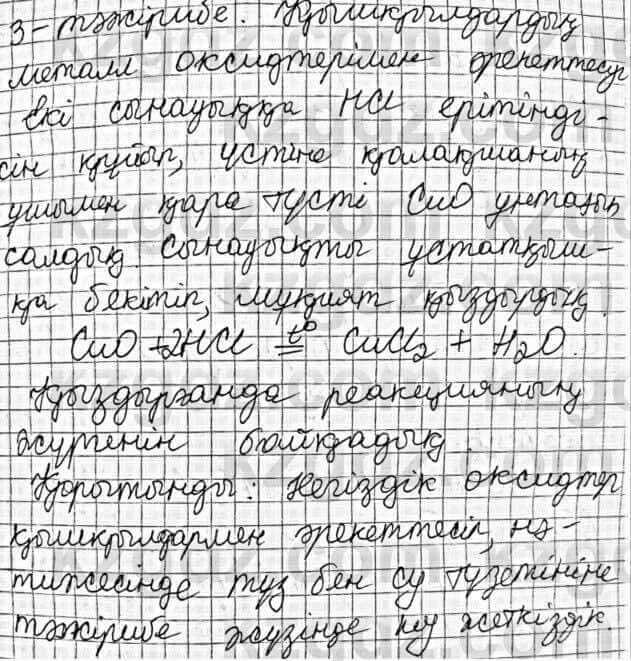 3-тәжірибе. Қышқылдардың
металл оксидтерімен әрекеттесуі
Екі сынауыққа HCl ерітінді-
сін құйып, үстіне қалақшаның
ұшымен қара түсті CuO ұнтағын
салдық. Сынауықты ұстатқыш-
қа бекітіп, мұқият қыздырдық.
CuO + 2HCl t° = CuCl₂ + H₂O.
Қыздырғанда реакцияның
жүретінін байқадық.
Қорытынды: Негіздік оксидтер
қышқылдармен әрекеттесіп, нә-
тижесінде тұз бен су түзетініне
тәжірибе жүзінде көз жеткіздік.